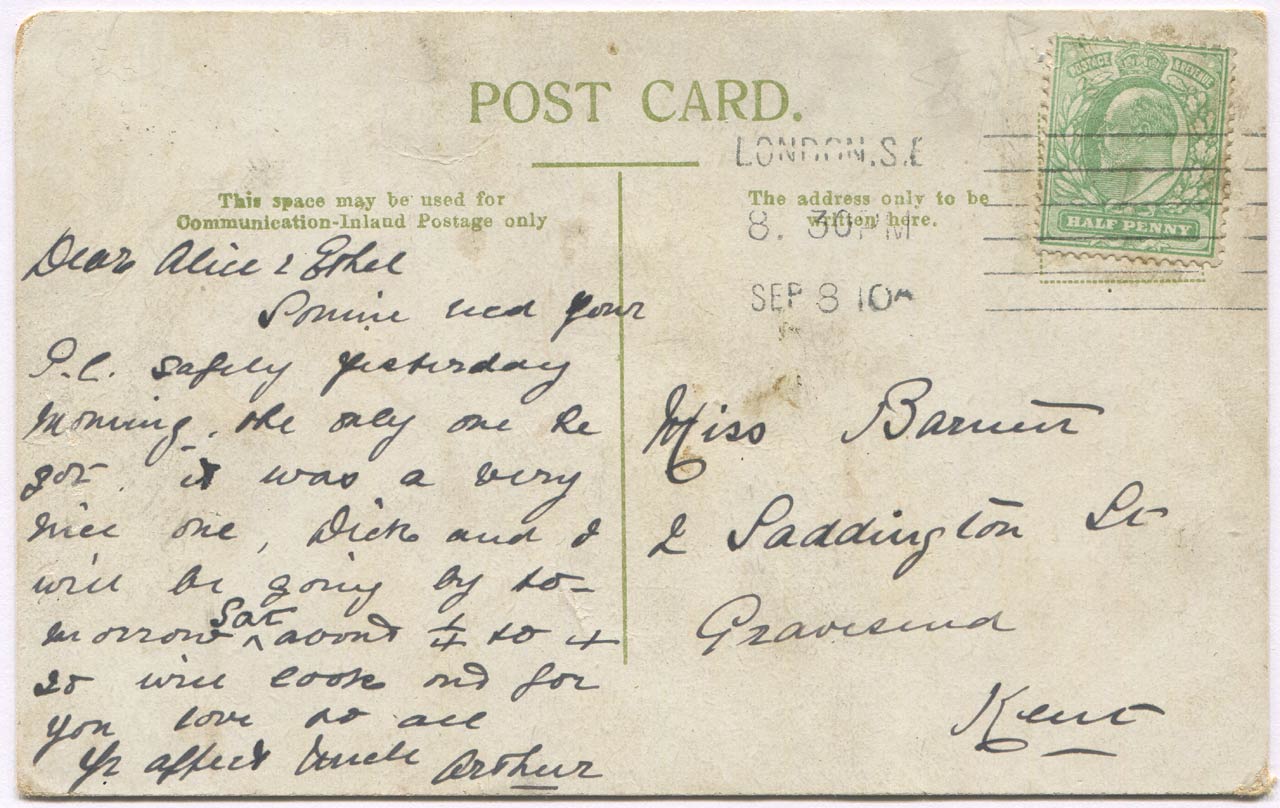 POST CARD.
This space may be used for
Communication-Inland Postage only
The address only to be
written here.
LONDON.S.E
8. 30PM
SEP 8 10
POSTAGE & REVENUE
HALF PENNY
Dear Alice & Ethel
recd your
P.C. safely yesterday
morning, the only one he
got. it was a very
nice one, Dick and I
will be going by to-
morrow Sat about 1/4 to 4
so will look out for
you love to all
Yr affect Uncle Arthur
Miss Barnett
2 Saddington St
Gravesend
Kent